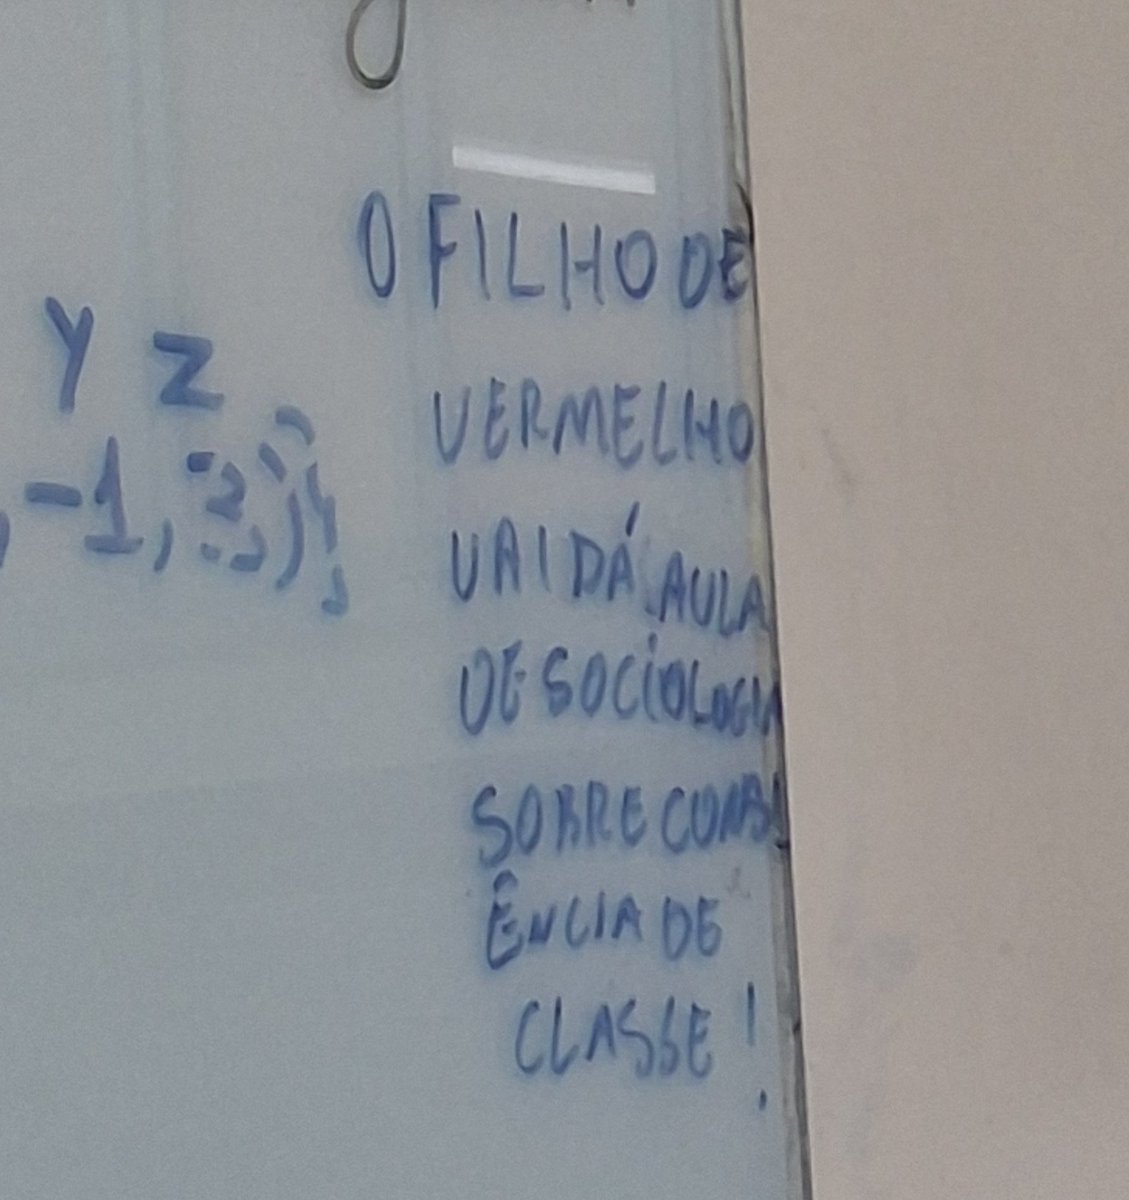 O FILHO DE
VERMELHO
Y Z
VAI DÁ AULA
, -1, -2, );
DE SOCIOLOGIA
SOBRE
ÊNCIA DE
CLASSE!